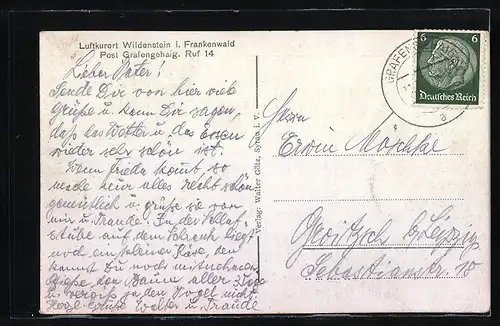 Luftkurort Wildenstein i. Frankenwald
Post Grafengehaig. Ruf 14
Lieber Vater!
Sende Dir von hier viele
Grüße u. kann Dir sagen,
daß das Wetter u. das Essen
wieder sehr schön ist.
Wenn Frieda kommt, so
mache euer alles recht schön
gemütlich u. grüße sie von
mir u. Traude. In der Schlaf-
stube auf dem Schrank liegt
noch ein kleiner Käse, den
kannst Du noch mitnehmen.
Gieße den Baum aller 3 Tage
u. vergiß ja den Vogel nicht.
Herzl. Grüße Walter u. Traude
Verlag: Walter Götz, Syrau i. V.
GRAFENG
a
6 6
Deutsches Reich
Herrn
Erwin Maschke
b/Leipzig
Sebastianstr. 18